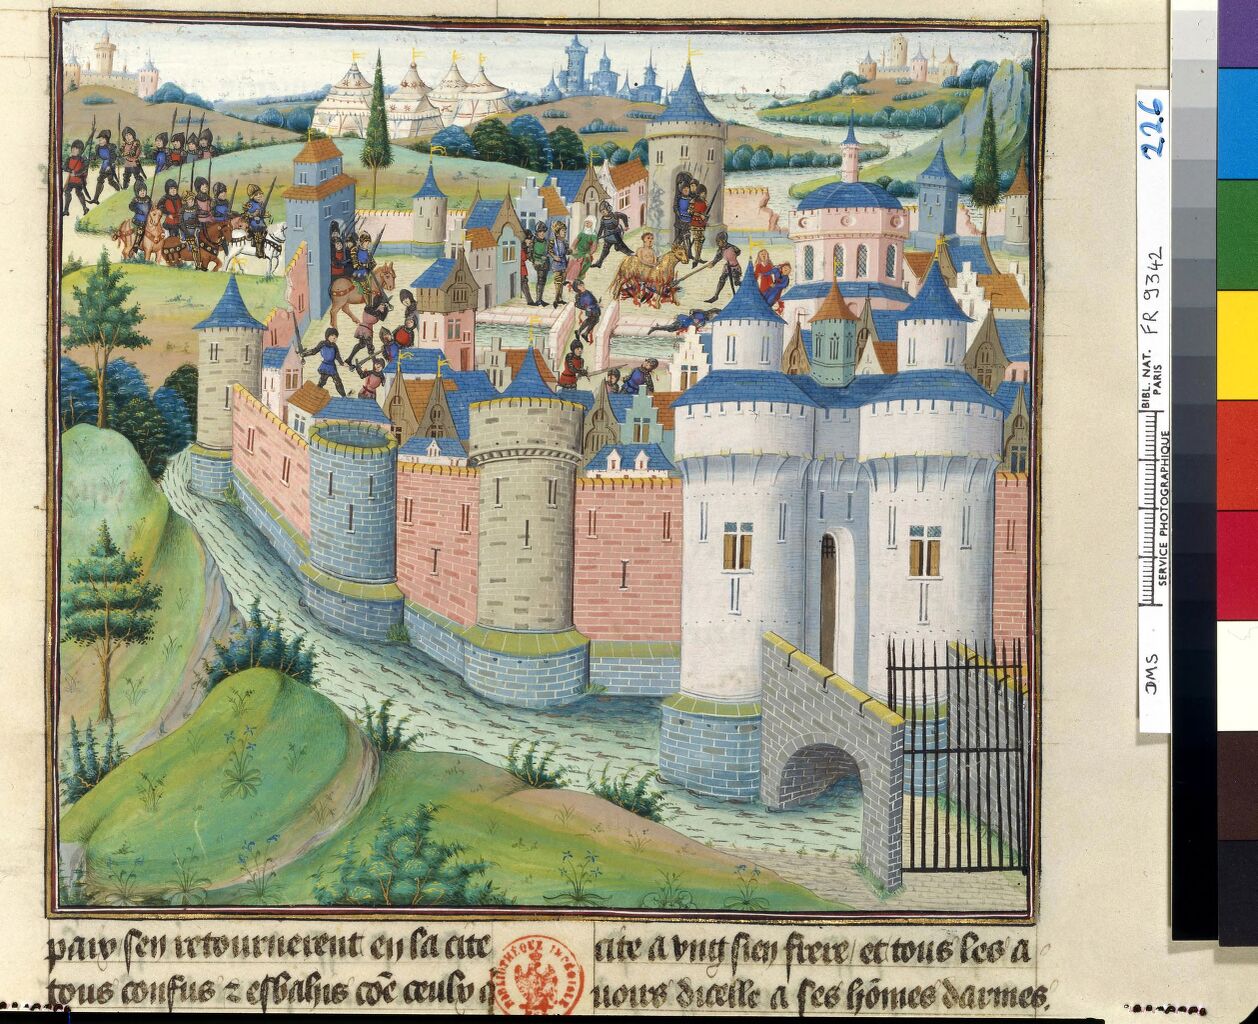 paix sen retournerent en sa cite
tous confus & esbahis cōe ceulx q
cite a vng sien frere / et tous les a
uours dicelle a ses hōmes darmes.
BIBLIOTHÈQUE
226
BIBL. NAT. FR 9342
PARIS
SERVICE PHOTOGRAPHIQUE
DMS